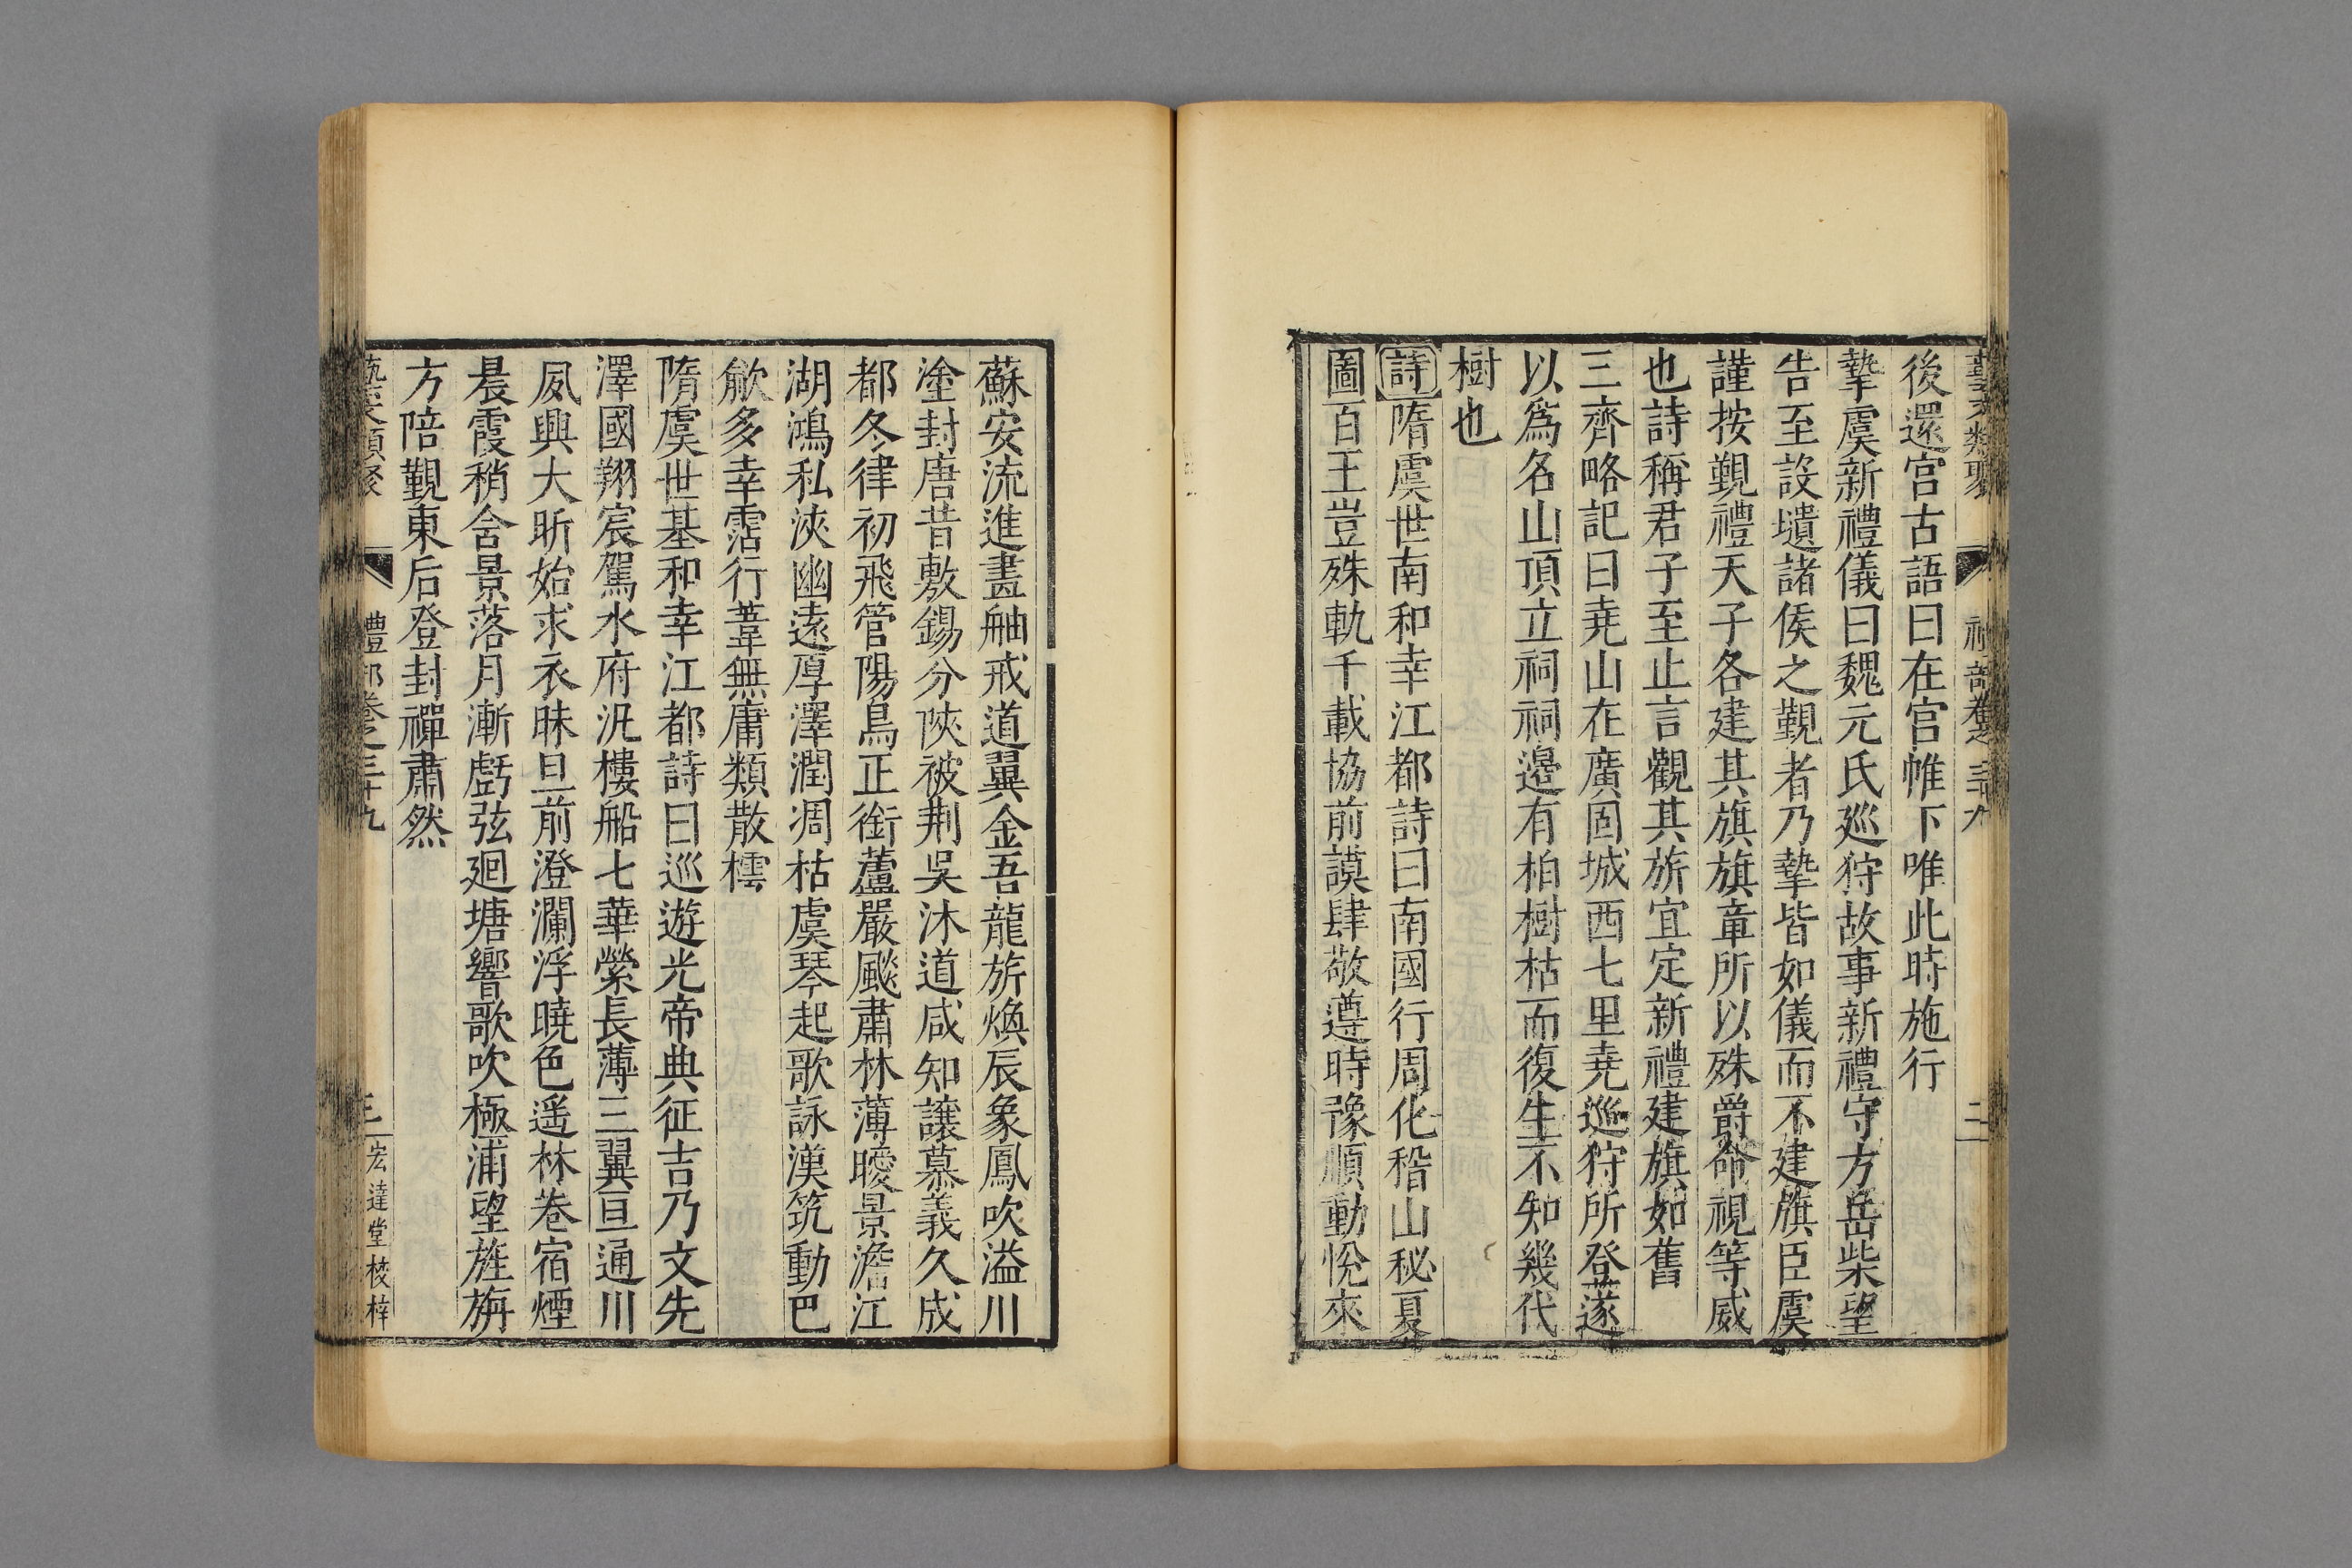 藝文類聚 禮部卷之三十九 二
後還宮古語曰在宮帷下唯此時施行
摯虞新禮儀曰魏元氏巡狩故事新禮守方岳柴望
告至設壝諸侯之覲者乃摯皆如儀而不建旗臣虞
謹按覲禮天子各建其旗旗章所以殊爵命視等威
也詩稱君子至止言觀其旂宜定新禮建旗如舊
三齊略記曰堯山在廣固城西七里堯巡狩所登遂
以爲名山頂立祠祠邊有柏樹枯而復生不知幾代
樹也
詩隋虞世南和幸江都詩曰南國行周化稽山秘夏
圖百王豈殊軌千載協前謨肆敬遵時豫順動悅來
蘇安流進畫舳戒道翼金吾龍旂煥辰象鳳吹溢川
塗封唐昔敷錫分陝被荆吳沐道咸知讓慕義久成
都冬律初飛管陽鳥正銜蘆嚴飈肅林薄曖景澹江
湖鴻私浹幽遠厚澤潤凋枯虞琴起歌詠漢筑動巴
歈多幸霑行葦無庸類散樗
隋虞世基和幸江都詩曰巡遊光帝典征吉乃文先
澤國翔宸駕水府汎樓船七華縈長薄三翼亘通川
夙興大昕始求衣昧旦前澄瀾浮曉色遥林卷宿煙
晨霞稍含景落月漸虧弦廻塘響歌吹極浦望旌斾
方陪觀東后登封禪肅然
藝文類聚 禮部卷之三十九 三 宏達堂校梓